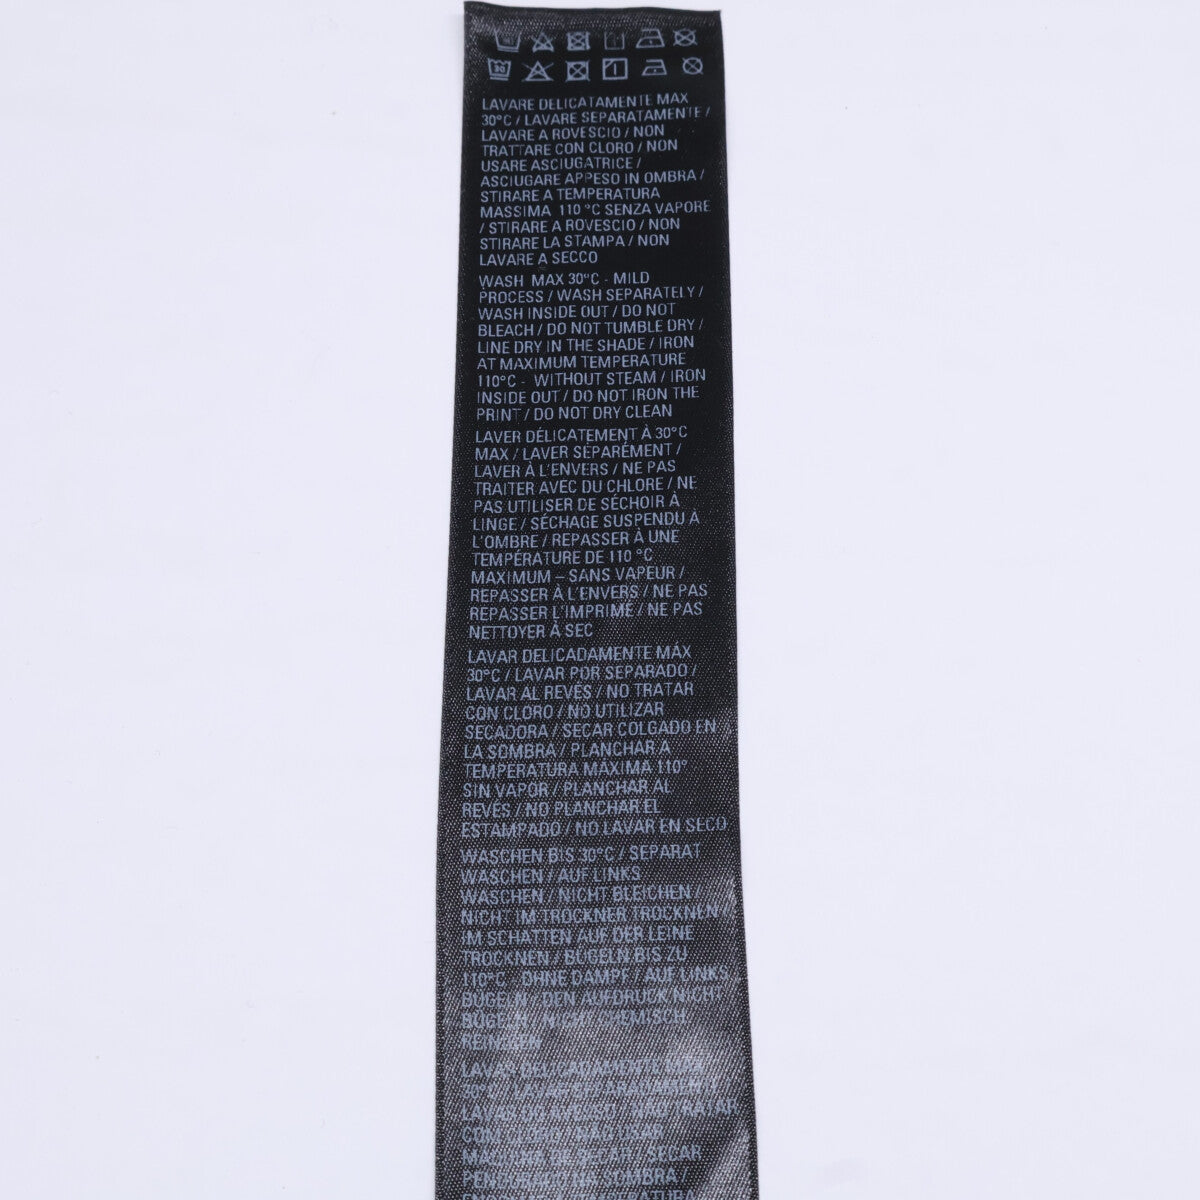 LAVARE DELICATAMENTE MAX
30°C / LAVARE SEPARATAMENTE /
LAVARE A ROVESCIO / NON
TRATTARE CON CLORO / NON
USARE ASCIUGATRICE /
ASCIUGARE APPESO IN OMBRA /
STIRARE A TEMPERATURA
MASSIMA 110 °C SENZA VAPORE
/ STIRARE A ROVESCIO / NON
STIRARE LA STAMPA / NON
LAVARE A SECCO
WASH MAX 30°C - MILD
PROCESS / WASH SEPARATELY /
WASH INSIDE OUT / DO NOT
BLEACH / DO NOT TUMBLE DRY /
LINE DRY IN THE SHADE / IRON
AT MAXIMUM TEMPERATURE
110°C - WITHOUT STEAM / IRON
INSIDE OUT / DO NOT IRON THE
PRINT / DO NOT DRY CLEAN
LAVER DÉLICATEMENT À 30°C
MAX / LAVER SÉPARÉMENT /
LAVER À L'ENVERS / NE PAS
TRAITER AVEC DU CHLORE / NE
PAS UTILISER DE SÉCHOIR À
LINGE / SÉCHAGE SUSPENDU À
L'OMBRE / REPASSER À UNE
TEMPÉRATURE DE 110 °C
MAXIMUM – SANS VAPEUR /
REPASSER À L'ENVERS / NE PAS
REPASSER L'IMPRIMÉ / NE PAS
NETTOYER À SEC
LAVAR DELICADAMENTE MÁX
30°C / LAVAR POR SEPARADO /
LAVAR AL REVÉS / NO TRATAR
CON CLORO / NO UTILIZAR
SECADORA / SECAR COLGADO EN
LA SOMBRA / PLANCHAR A
TEMPERATURA MÁXIMA 110°
SIN VAPOR / PLANCHAR AL
REVÉS / NO PLANCHAR EL
ESTAMPADO / NO LAVAR EN SECO
WASCHEN BIS 30°C / SEPARAT
WASCHEN / AUF LINKS
WASCHEN / NICHT BLEICHEN /
NICHT IM TROCKNER TROCKNEN /
IM SCHATTEN AUF DER LEINE
TROCKNEN / BÜGELN BIS ZU
110°C - OHNE DAMPF / AUF LINKS
BÜGELN / DEN AUFDRUCK NICHT
BÜGELN / NICHT CHEMISCH
REINIGEN
LAVAR DELICADAMENTE
30°C / LAVAR
LAVAR DO AVESSO / NÃO TRATAR
COM CLORO / NÃO USAR
SECAR
NA SOMBRA